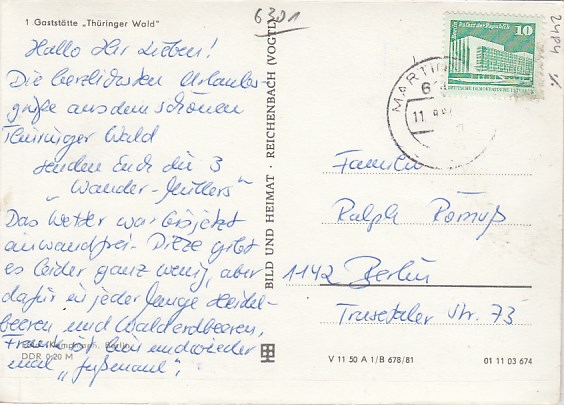 1 Gaststätte „Thüringer Wald"
6301
Hallo Ihr Lieben!
Die herzlichsten Urlaubs-
grüße aus dem schönen
Thüringer Wald
senden Euch die 3
„Wander-Müllers"
Das Wetter war bis jetzt
einwandfrei. Pilze gibt
es leider ganz wenig, aber
dafür in jeder Menge Heidel-
beeren und Walderdbeeren,
Frank ist hin und wieder
mal „
Berlin
DDR 0,20 M
BILD UND HEIMAT · REICHENBACH (VOGTL)
10
Berlin, Palast der Republik
DEUTSCHE DEMOKRATISCHE REPUBLIK
MARTIN
11.
2484
Familie
Ralph
1142 Berlin
Trusetaler Str. 73
V 11 50 A 1/B 678/81
01 11 03 674